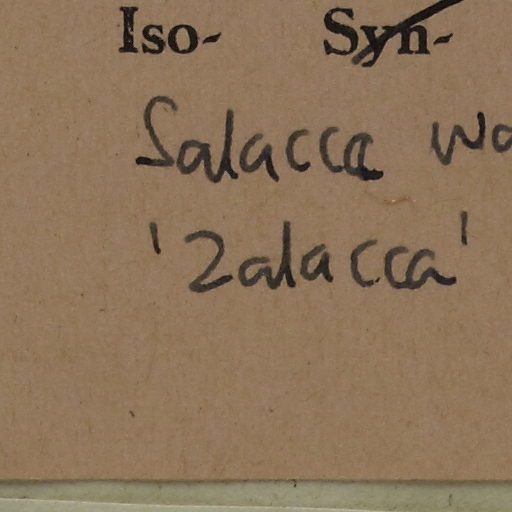 Iso- Syn-
Salacca
'Zalacca'